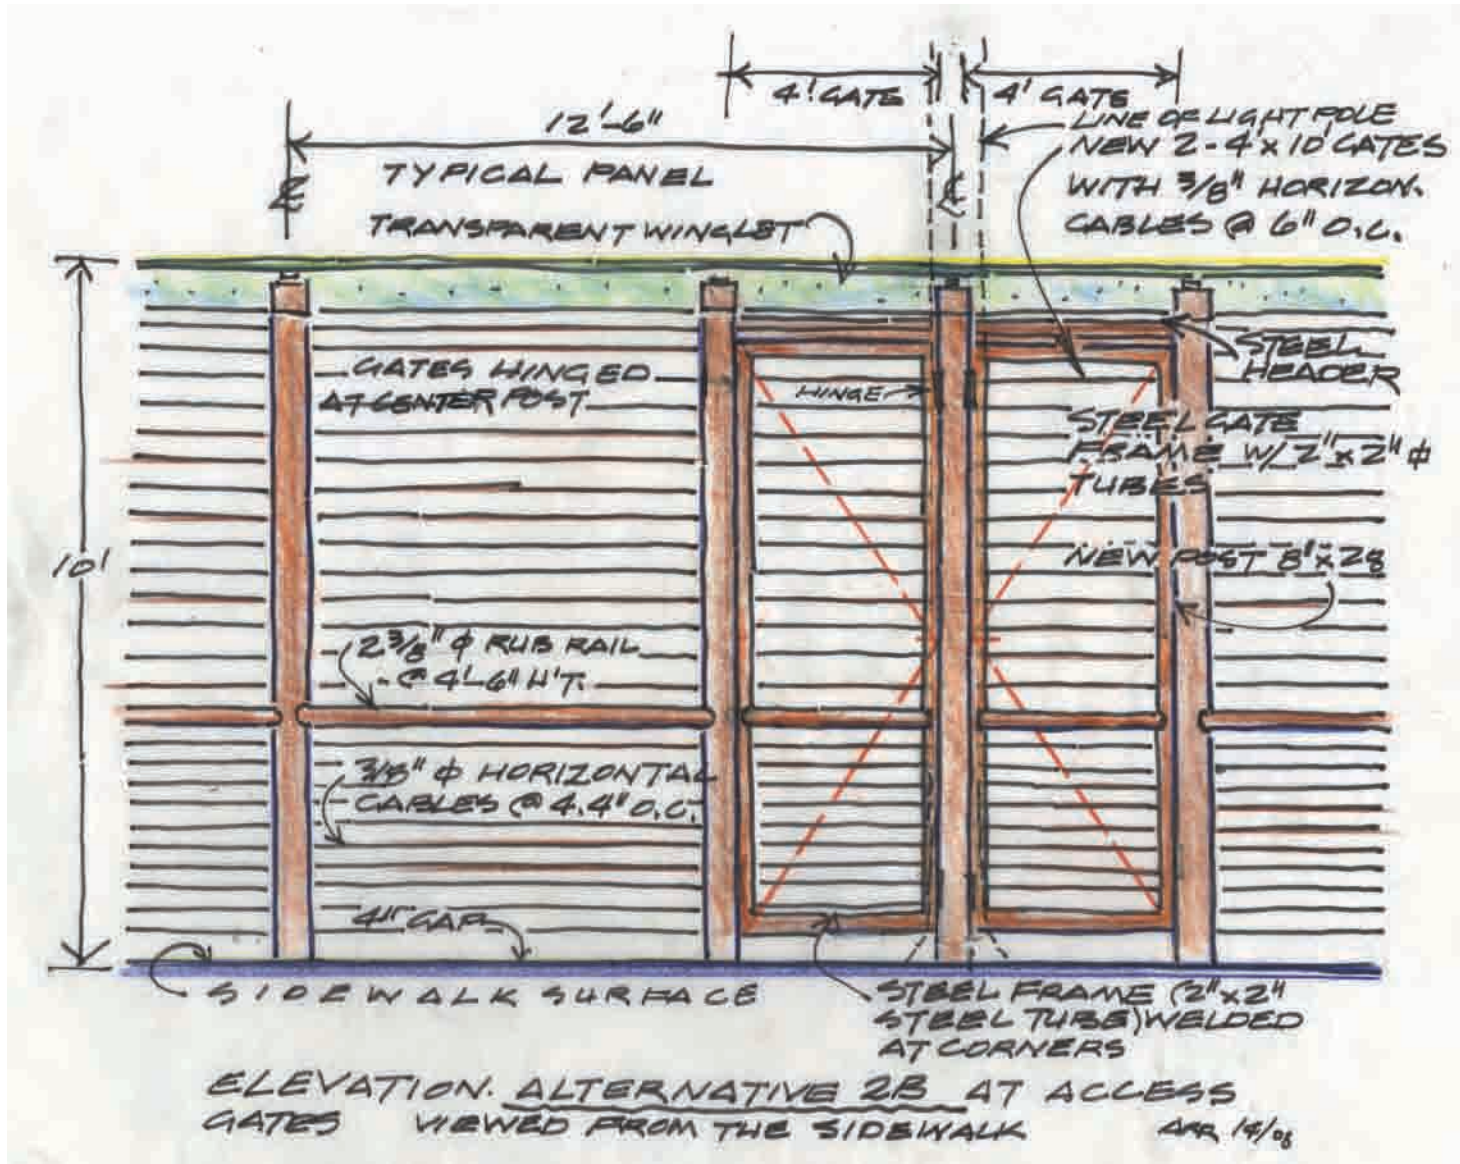 4' GATE
4' GATE
12'-6"
TYPICAL PANEL
LINE OF LIGHT POLE
NEW 2-4'x10' GATES
WITH 3/8" HORIZON.
CABLES @ 6" O.C.
℄
℄
TRANSPARENT WINGLET
10'
GATES HINGED
AT CENTER POST
HINGE
STEEL
HEADER
STEEL GATE
FRAME W/ 2"x2" ϕ
TUBES
NEW POST 8"x28
2 3/8" ϕ RUB RAIL
@ 4'-6" H'T.
3/8" ϕ HORIZONTAL
CABLES @ 4.4" O.C.
4" GAP
SIDEWALK SURFACE
STEEL FRAME (2"x2"
STEEL TUBE) WELDED
AT CORNERS
ELEVATION. ALTERNATIVE 2B AT ACCESS
GATES VIEWED FROM THE SIDEWALK
APR 14/08